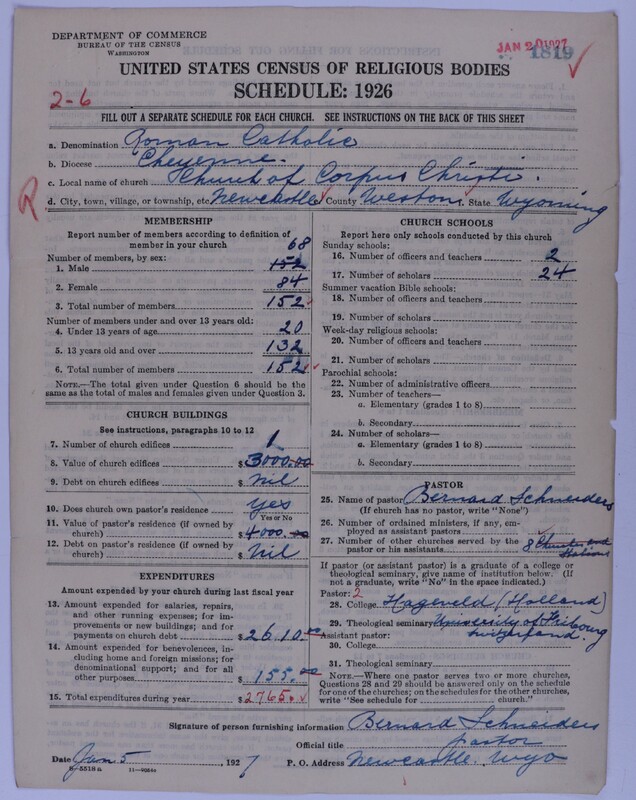 DEPARTMENT OF COMMERCE
BUREAU OF THE CENSUS
WASHINGTON
JAN 20 1927
1819
UNITED STATES CENSUS OF RELIGIOUS BODIES
SCHEDULE: 1926
2-6
FILL OUT A SEPARATE SCHEDULE FOR EACH CHURCH. SEE INSTRUCTIONS ON THE BACK OF THIS SHEET
a. Denomination Roman Catholic
b. Diocese Cheyenne.
c. Local name of church Church of Corpus Christi.
R
d. City, town, village, or township, etc. Newcastle County Weston State Wyoming
MEMBERSHIP
Report number of members according to definition of
member in your church
68
Number of members, by sex:
1. Male 152
2. Female 84
3. Total number of members 152
Number of members under and over 13 years old:
4. Under 13 years of age 20
5. 13 years old and over 132
6. Total number of members 152
NOTE.—The total given under Question 6 should be the
same as the total of males and females given under Question 3.
CHURCH BUILDINGS
See instructions, paragraphs 10 to 12
7. Number of church edifices 1
8. Value of church edifices $ 3000.00
9. Debt on church edifices $ nil
10. Does church own pastor's residence yes
Yes or No
11. Value of pastor's residence (if owned by
church) $ 4000.00
12. Debt on pastor's residence (if owned by
church) $ Nil
EXPENDITURES
Amount expended by church during last fiscal year
13. Amount expended for salaries, repairs,
and other running expenses; for im-
provements or new buildings; and for
payments on church debt $ 2610.00
14. Amount expended for benevolences, in-
cluding home and foreign missions; for
denominational support; and for all
other purposes $ 155.00
15. Total expenditures during year $ 2765.
CHURCH SCHOOLS
Report here only schools conducted by this church
Sunday schools:
16. Number of officers and teachers 2
17. Number of scholars 24
Summer vacation Bible schools:
18. Number of officers and teachers
19. Number of scholars
Week-day religious schools:
20. Number of officers and teachers
21. Number of scholars
Parochial schools:
22. Number of administrative officers
23. Number of teachers—
a. Elementary (grades 1 to 8)
b. Secondary
24. Number of scholars—
a. Elementary (grades 1 to 8)
b. Secondary
PASTOR
25. Name of pastor Bernard Schneiders
(If church has no pastor, write "None")
26. Number of ordained ministers, if any, em-
ployed as assistant pastors
27. Number of other churches served by the
pastor or his assistants 8 Churches and Stations
If pastor (or assistant pastor) is a graduate of a college or
theological seminary, give name of institution below. (If
not a graduate, write "No" in the space indicated.)
Pastor: 2
28. College Hageveld (Holland)
29. Theological seminary University of Fribourg
Assistant pastor: Switzerland.
30. College
31. Theological seminary
NOTE.—Where one pastor serves two or more churches,
Questions 28 and 29 should be answered only on the schedule
for one of the churches; on the schedules for the other churches,
write "See schedule for church."
Signature of person furnishing information Bernard Schneiders
Official title pastor
Date Jan 5, 1927 P. O. Address Newcastle, Wyo